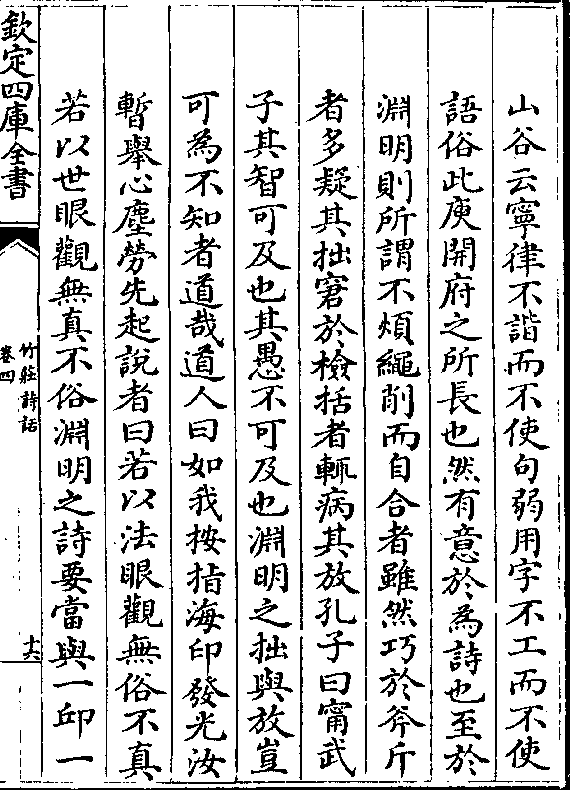 山谷云寧律不諧而不使句弱用字不工而不使
語俗此庾開府之所長也然有意於為詩也至於
淵明則所謂不煩繩削而自合者雖然巧於斧斤
者多疑其拙窘於檢括者輒病其放孔子曰甯武
子其智可及也其愚不可及也淵明之拙與放豈
可為不知者道哉道人曰如我按指海印發光汝
暫舉心塵勞先起說者曰若以法眼觀無俗不真
若以世眼觀無真不俗淵明之詩要當與一丘一
欽定四庫全書
竹莊詩話
卷四
十六